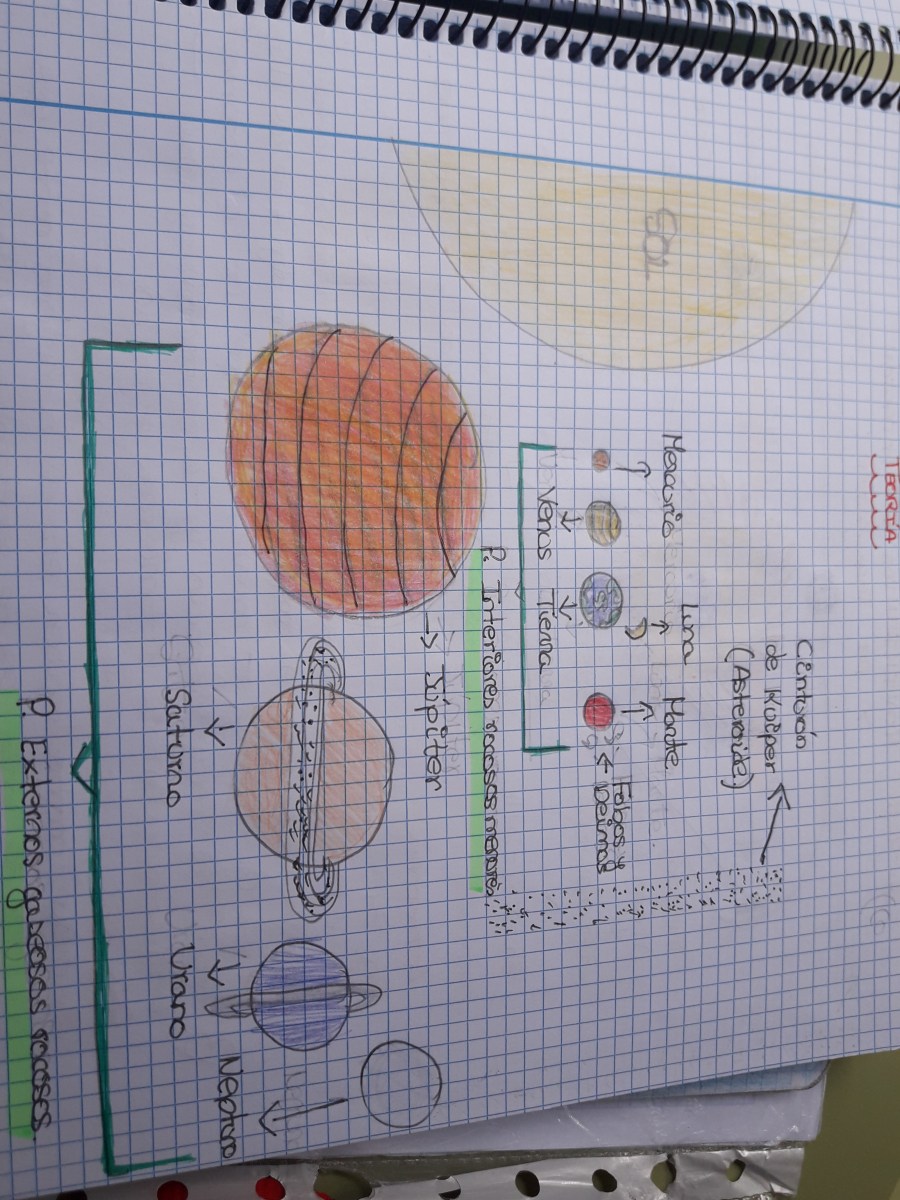 TEORÍA
SOL
Cinturón
de Kuiper
(Asteroide)
Mercurio
Luna
Marte
Fobos y
Deimos
Venus
Tierra
P. Interiores rocosos menores
Júpiter
Saturno
Urano
Neptuno
P. Externos gaseosos rocosos